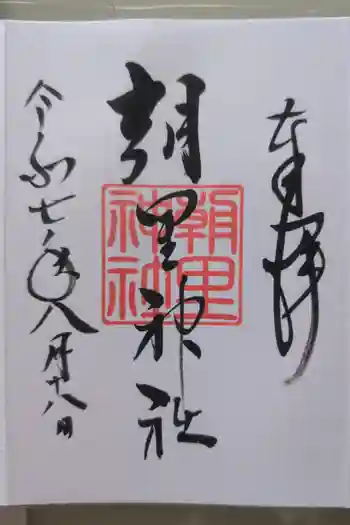 奉拝
朝里神社
朝里神社
令和七年八月十八日